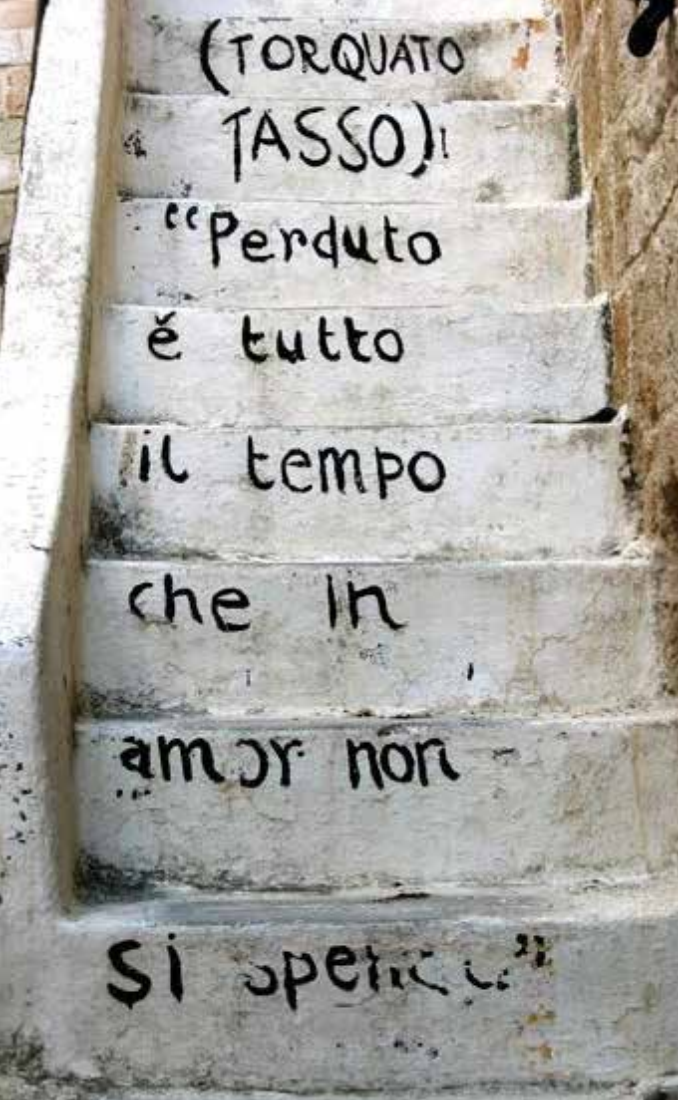 (TORQUATO
TASSO)
“Perduto
ě tutto
il tempo
che in
amor non
si